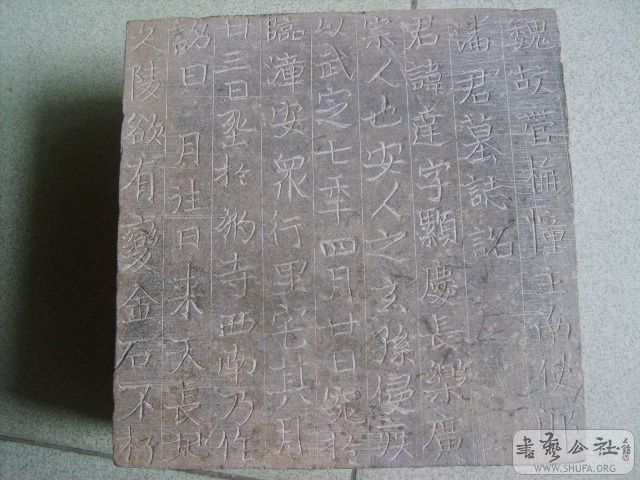 魏故營構幢主南使
潘君墓誌銘
君諱達字顯慶長樂廣
崇人也安人之玄孫侵疾
以武定七年四月廿日於
臨漳安衆行里宅其月
廿三日塟於豹寺西南乃作
銘曰 月往日来天長地
久陵欲有變金石不朽
書藝公社
WWW.SHUFA.ORG